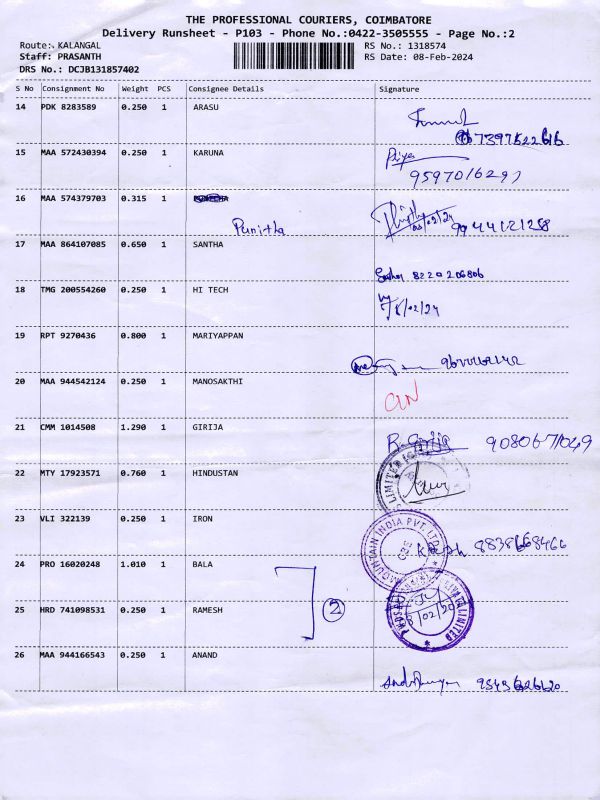 THE PROFESSIONAL COURIERS, COIMBATORE
Delivery Runsheet - P103 - Phone No.:0422-3505555 - Page No.:2
Route: KALANGAL RS No.: 1318574
Staff: PRASANTH RS Date: 08-Feb-2024
DRS No.: DCJB131857402
S No Consignment No Weight PCS Consignee Details Signature
14 PDK 8283589 0.250 1 ARASU
15 MAA 572430394 0.250 1 KARUNA Priya
9597016297
16 MAA 574379703 0.315 1
Punitha 08/02/24 9944121258
17 MAA 864107085 0.650 1 SANTHA
8220206806
18 TMG 200554260 0.250 1 HI TECH
8/02/24
19 RPT 9270436 0.800 1 MARIYAPPAN
20 MAA 944542124 0.250 1 MANOSAKTHI
21 CMM 1014508 1.290 1 GIRIJA
R. Girija 9080671049
22 MTY 17923571 0.760 1 HINDUSTAN
LIMITED
23 VLI 322139 0.250 1 IRON
MOUNTAIN INDIA PVT. LTD
8838668466
24 PRO 16020248 1.010 1 BALA
2
25 HRD 741098531 0.250 1 RAMESH
PRIVATE LIMITED
26 MAA 944166543 0.250 1 ANAND